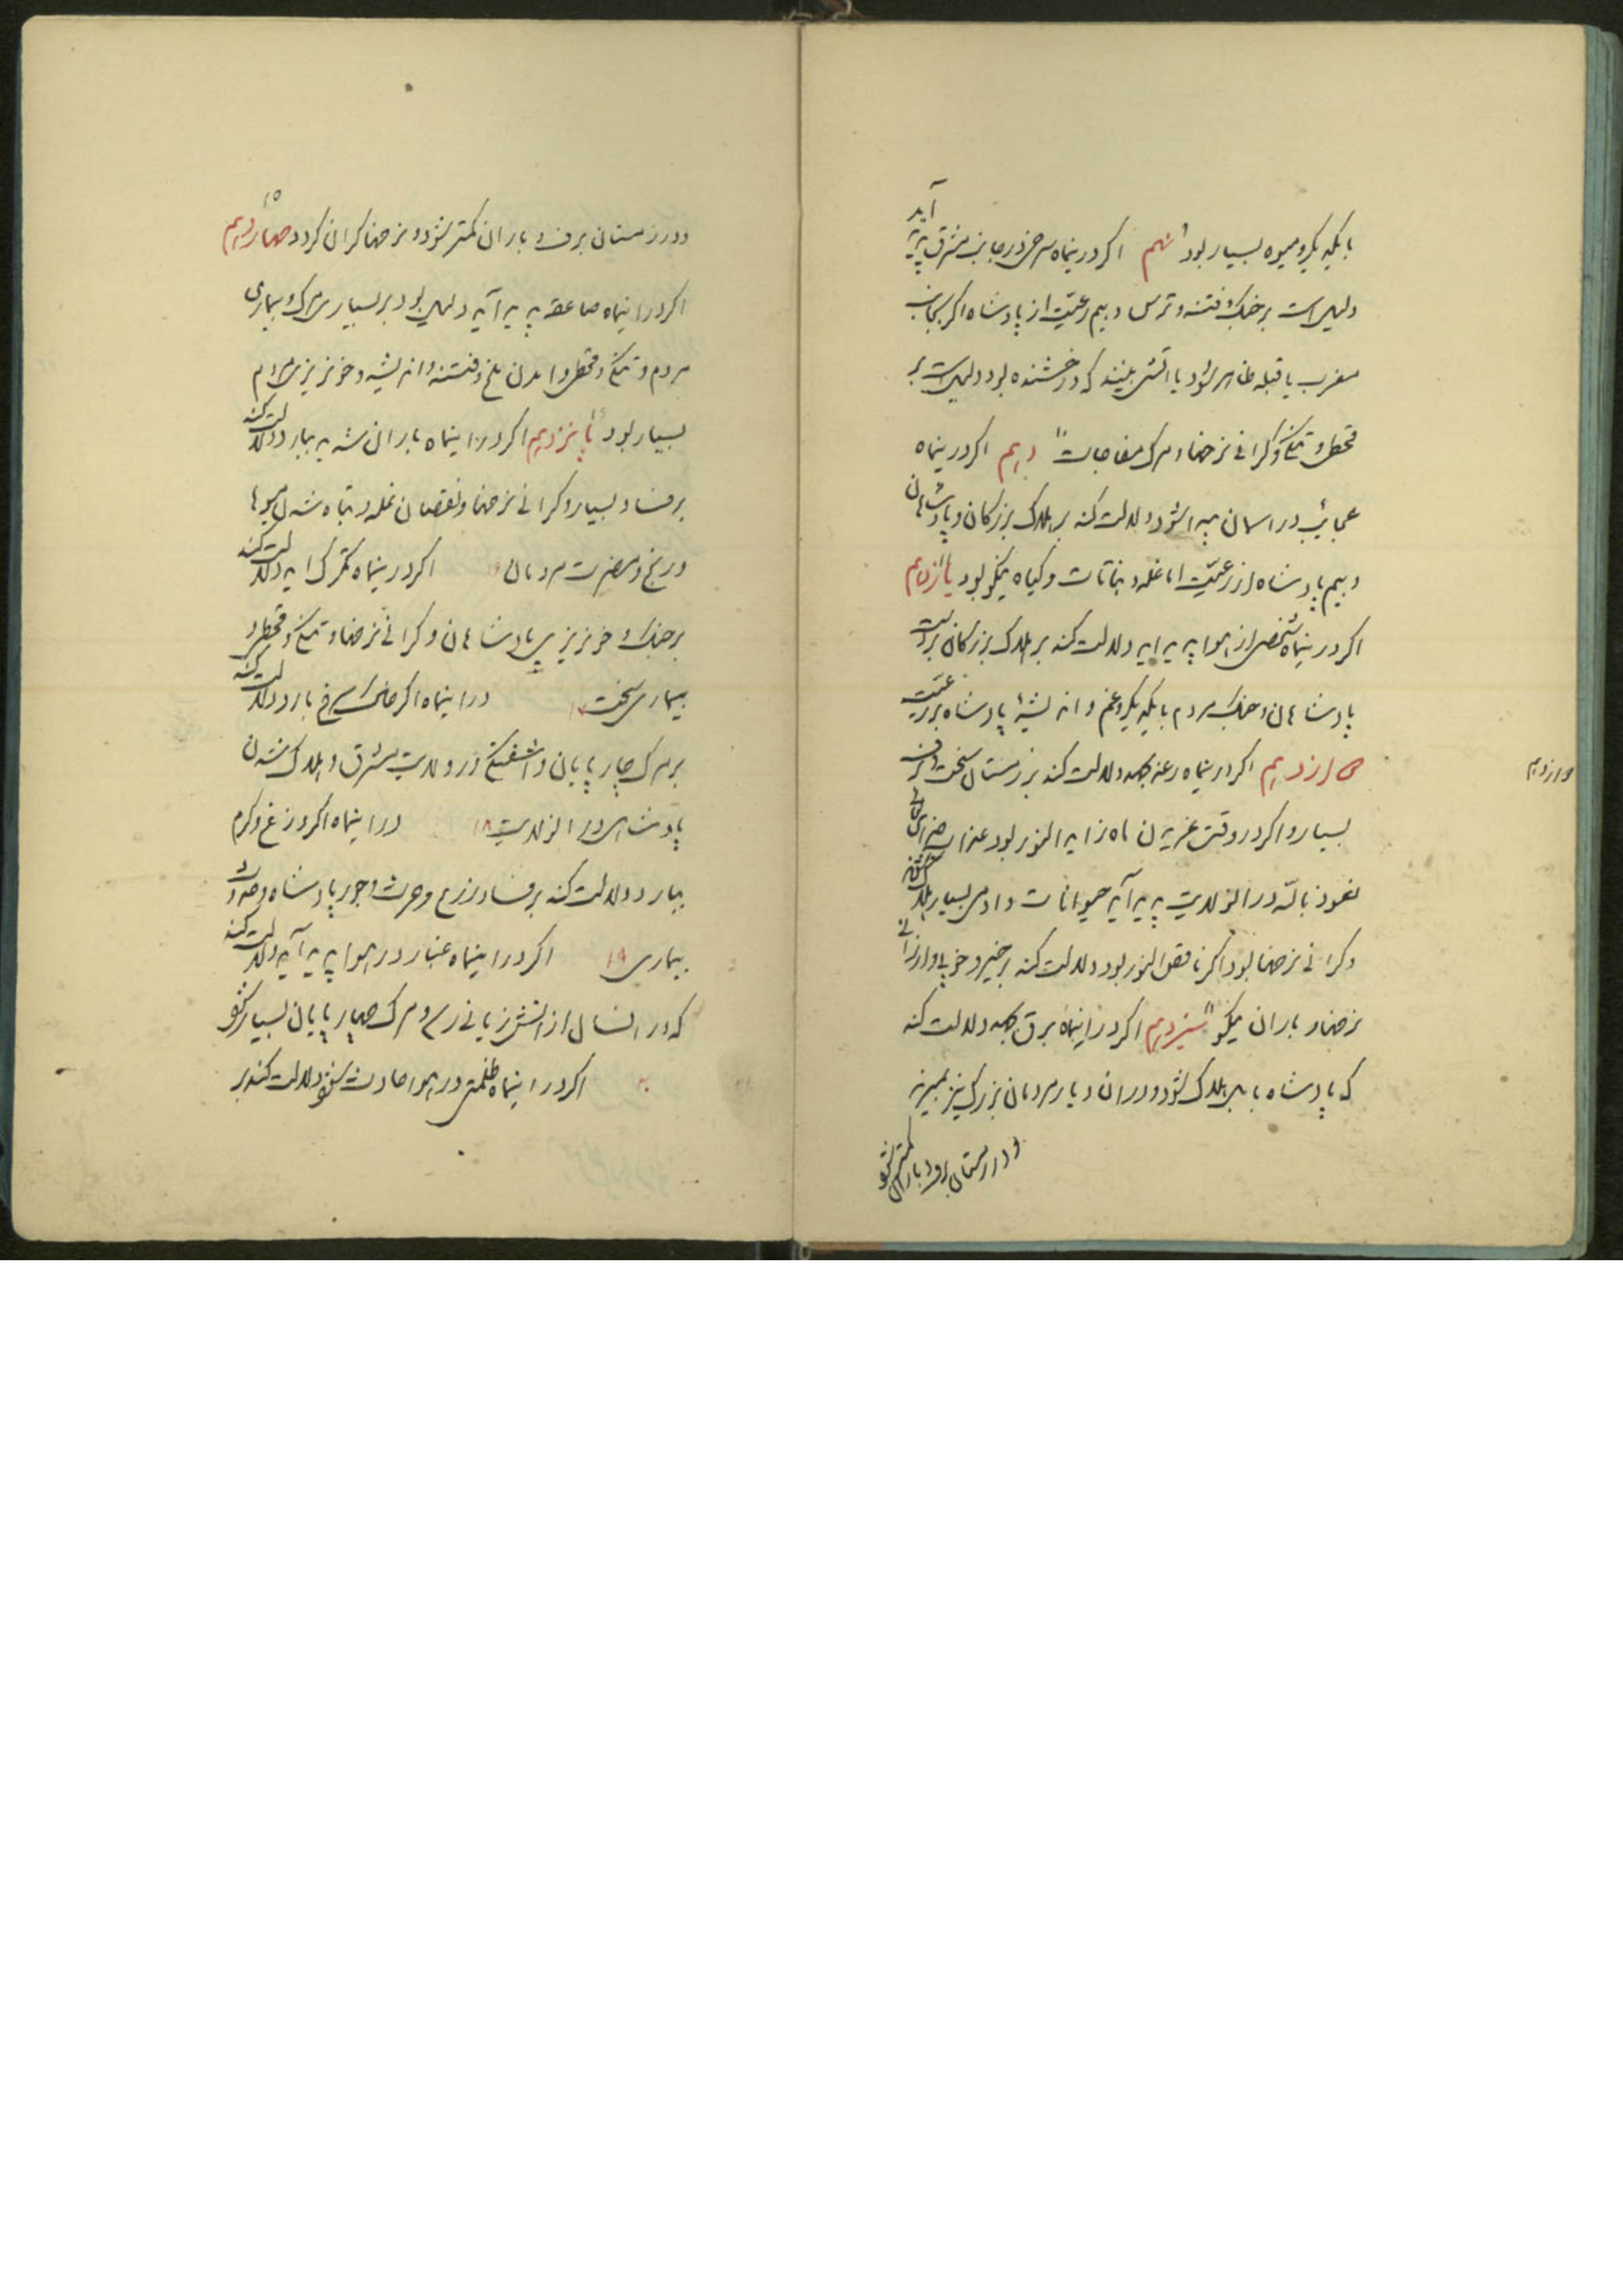 بایکدیکر و میوه بسیار بود نهم اکر درینماه سرخی در جانب مشرق پدید آید
دلیل است بر جنک و فتنه و ترس و بیم رعیت از پادشاه اکر بجانب
مغرب یا قبله ظاهر شود یا اتش بینند که درخشنده بود دلیل است بر
قحط و تنکی و کرانی نرخها و مرک مفاجات دهم اکر درینماه
عجایب در اسمان پیدا شود دلالت کند بر هلاک بزرکان و پادشاهان
و بیم پادشاه از رعیت اما غله و نباتات و کیاه نیکو بود یازدهم
اکر درینماه شخصی از هوا پدید اید دلالت کند بر هلاک بزرکان
پادشاهان و جنک مردم بایکدیکر و غم و اندیشه پادشاه بر رعیت
دوازدهم اکر درینماه رعد جهد دلالت کند بر زمستان سخت و برف
بسیار و اکر در وقت غریدن ماه زاید النور بود
نعوذ بالله در انولایت پدید آید حیوانات و ادمی بسیار هلاک
و کرانی نرخها بود اکر ناقص النور بود دلالت کند بر خیر و خوبی و ارزانی
نرخها و باران نیکو سیزدهم اکر در اینماه برق جهد دلالت کند
که پادشاه بابل هلاک شود و دران دیار مردمان بزرک نیز بمیرند
و در زمستان برف و باران کمتر شود
دوازدهم
و در زمستان برف و باران کمتر شود و نرخها کران کردد چهاردهم
اکر در اینماه صاعقه پدید آید دلیل بود بر بسیاری مرک و بیماری
مردم و تنکی و قحط و امدن ملخ و فتنه و اندیشه و خونریزی مردم
بسیار بود پانزدهم اکر در اینماه باران شدید ببارد دلالت کند
بر فساد بسیار و کرانی نرخها و نقصان غله و تباه شدن میوها
و رنج و مضرت مردمان ۱۶ اکر درینماه تکرک اید دلالت کند
بر جنک و خونریزی پادشاهان و کرانی نرخها و تنکی و قحط و
بیماری سخت ۱۷ در اینماه اکر خاک سرخ بارد دلالت کند
بر مرک چارپایان و اشفتکی در ولایت مشرق و هلاک شدن
پادشاهی در انولایت ۱۸ در اینماه اکر وزغ و کرم
ببارد دلالت کند بر فساد زرع و حرث و جور پادشاه و حدوث
بیماری ۱۹ اکر در اینماه غبار در هوا پدید آید دلالت کند
که در انسال از اتش زیانی رسد و مرک چهارپایان بسیار شود
۲۰ اکر در اینماه ظلمتی در هوا حادث شود دلالت کند بر